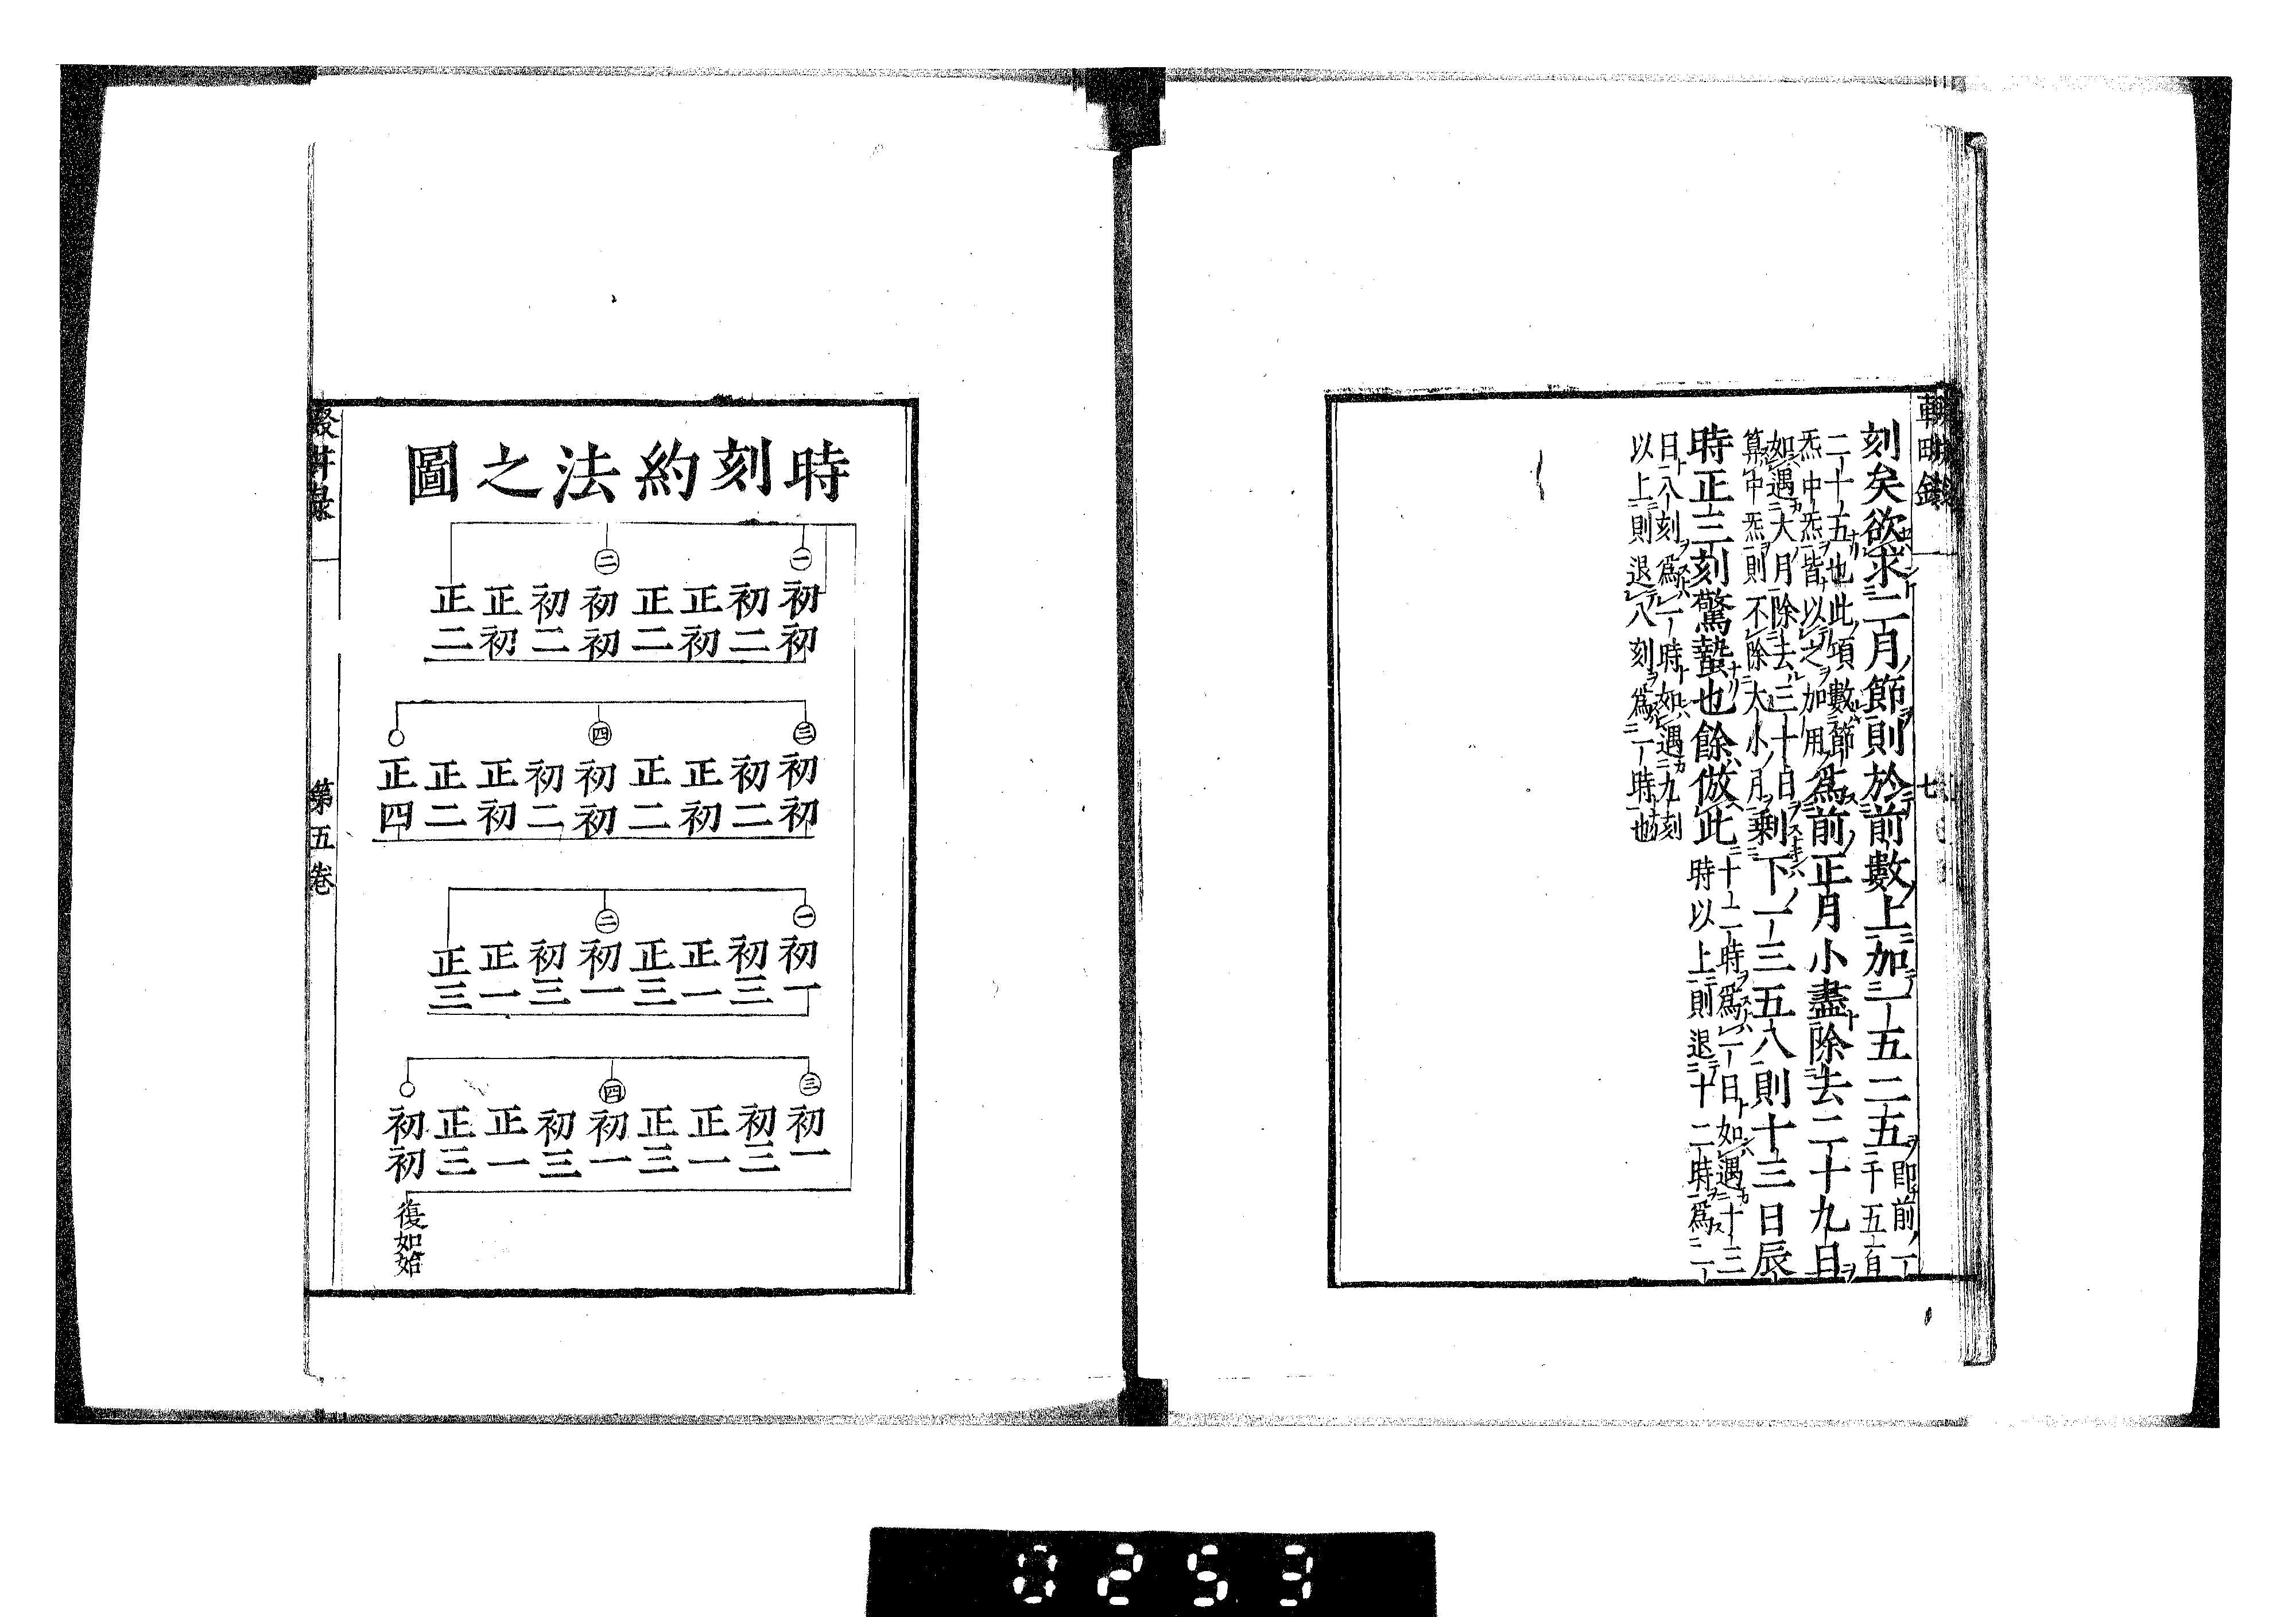 刻矣欲求二月節則於前數上加一五二五
即前一
千五百
二十五也此項數節
炁中炁皆以之加用
爲前正月小盡除去二十九日
如遇大月除去三十日
算中炁則不除大小月
剩下一三五八則十三日辰
時正三刻驚蟄也餘倣此
十二時爲一日如遇十三
時以上則退十二時爲一
日八刻爲一時如遇九刻
以上則退八刻爲一時也
七
時刻約法之圖
一 二
初初 初二 正初 正二 初初 初二 正初 正二
三 四 〇
初初 初二 正初 正二 初初 初二 正初 正二 正四
一 二
初一 初三 正一 正三 初一 初三 正一 正三
三 四 〇
初一 初三 正一 正三 初一 初三 正一 正三 初初
復如始
第五卷
0253